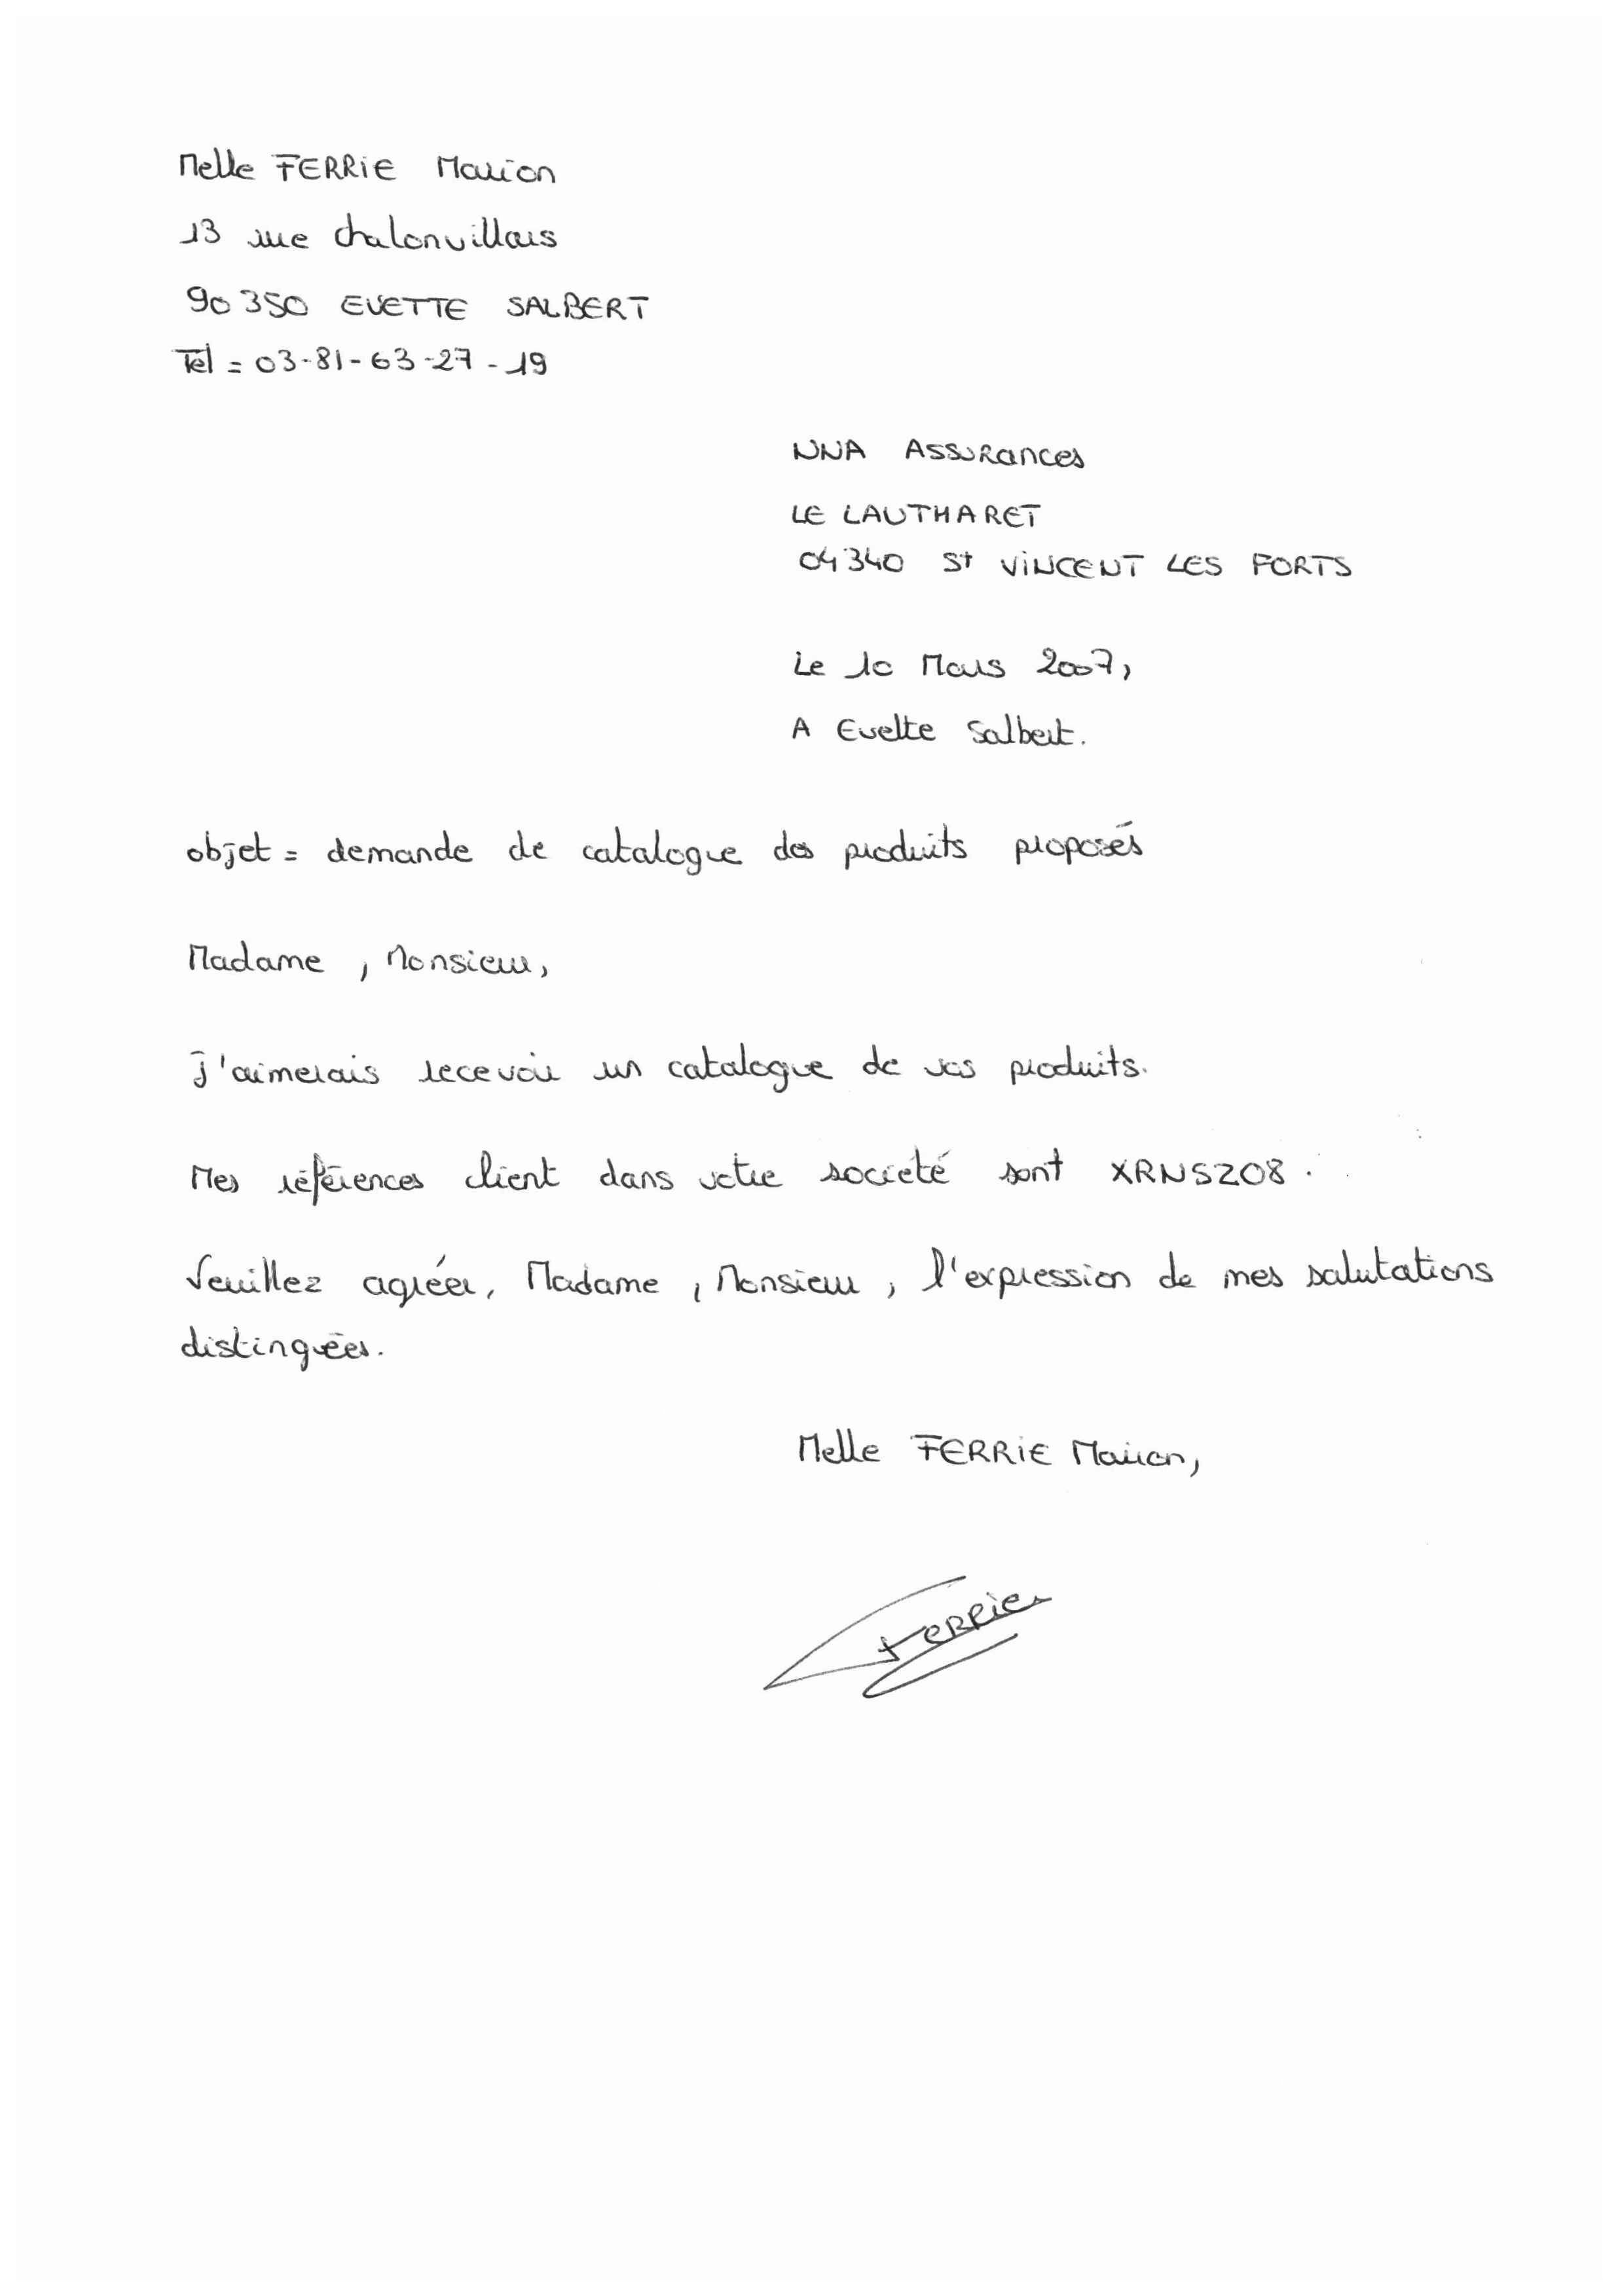 Melle FERRIE Marion
13 rue chalonvillais
90350 EVETTE SALBERT
Tel = 03-81-63-27-19
NNA Assurances
LE LAUTHARET
04340 St VINCENT LES FORTS
Le 10 Mars 2007,
A Evette Salbert.
objet = demande de catalogue des produits proposés
Madame, Monsieur,
J'aimerais recevoir un catalogue de vos produits.
Mes références client dans votre société sont XRNSZ08.
Veuillez agréer, Madame, Monsieur, l'expression de mes salutations
distinguées.
Melle FERRIE Marion,
Ferrie